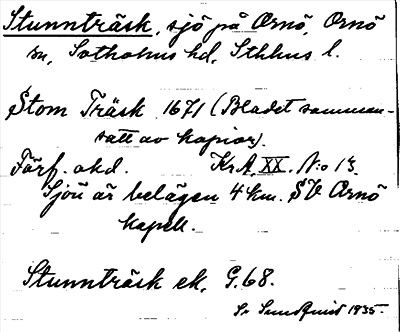 Stunnträsk, sjö på Ornö, Ornö
sn, Sotholms hd, Sthlms l.
Stom Träsk 1671 (Bladet samman-
satt av kopior).
Förf. okd. Kr A XX. N:o 13.
Sjön är belägen 4 km. SV Ornö
kapell.
Stunnträsk ek. G.68.
Sr Sundquist 1935.